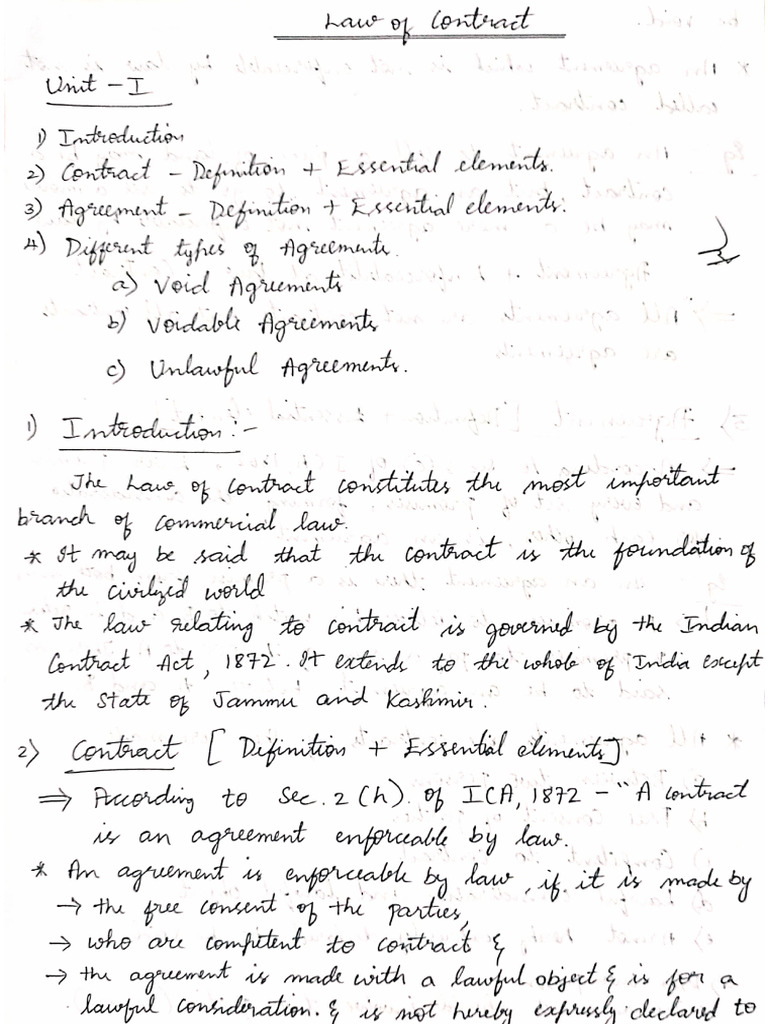 Law of Contract
Unit - I
1) Introduction
2) Contract - Definition + Essential elements.
3) Agreement - Definition + Essential elements.
4) Different types of Agreements.
a) Void Agreements
b) Voidable Agreements
c) Unlawful Agreements.
1) Introduction:-
The Law of Contract constitutes the most important
branch of commercial law.
* It may be said that the contract is the foundation of
the civilized world
* The law relating to contract is governed by the Indian
Contract Act, 1872. It extends to the whole of India except
the State of Jammu and Kashmir.
2) Contract [Definition + Essential elements].
⇒ According to Sec. 2(h). of ICA, 1872 - "A contract
is an agreement enforceable by law.
* An agreement is enforceable by law, if it is made by
→ the free consent of the parties,
→ who are competent to contract &
→ the agreement is made with a lawful object & is for a
lawful consideration. & is not hereby expressly declared to